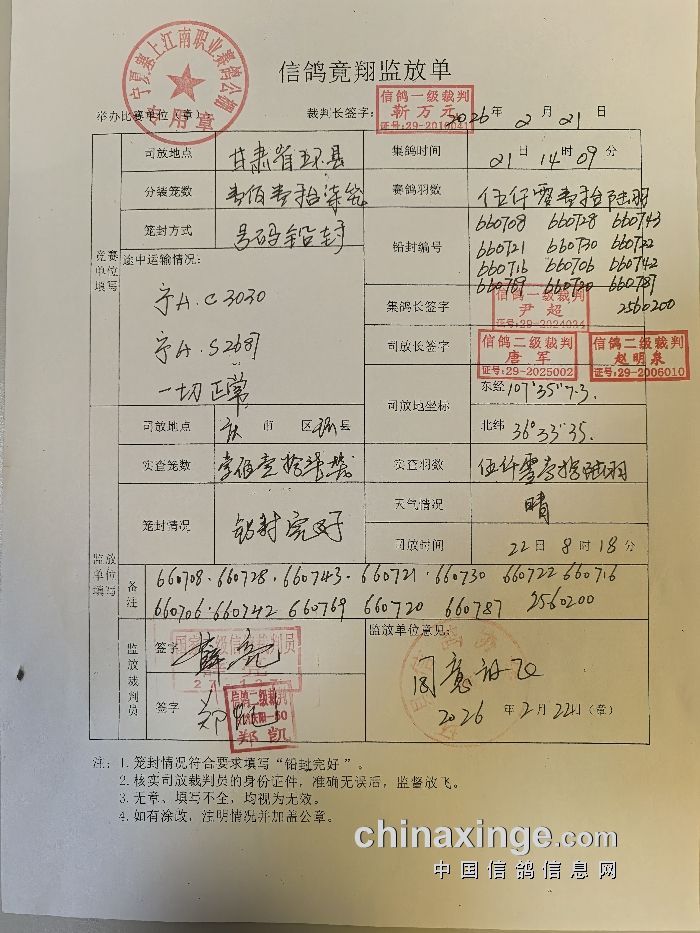 宁夏塞上江南职业赛鸽公棚
专用章
信鸽竟翔监放单
举办比赛单位（章）
裁判长签字：
信鸽一级裁判
靳万元
2026年 2月 21日
司放地点 甘肃省环县 集鸽时间 21日 14时 09分
分装笼数 壹佰壹拾柒笼 赛鸽羽数 伍仟零壹拾陆羽
笼封方式 号码铅封 铅封编号
660708 660728 660743
660721 660730 660722
660716 660706 660742
660769 660720 660787
2560200
竞赛单位填写
途中运输情况：
宁A.C3030
一切正常
集鸽长签字
信鸽一级裁判
尹超
证号:29-2024034
司放长签字
信鸽二级裁判
唐军
证号:29-2025002
信鸽二级裁判
赵明泉
证号:29-2006010
司放地坐标
东经 107°35"7.3
北纬 36°33"35.
司放地点 市 区 环县
实查笼数 壹佰壹拾柒笼 实查羽数 伍仟零壹拾陆羽
笼封情况 铅封完好 天气情况 晴
司放时间 22日 8时 18分
监放单位填写
备注
660708.660728.660743.660721.660730 660722 660716
660706.660742 660769 660720 660787 2560200
监放裁判员
签字 薛亮
签字 郑凯
信鸽一级裁判
郑凯
监放单位意见：
同意放飞
2026年2月22日(章)
注：1.笼封情况符合要求填写“铅封完好”。
2.核实司放裁判员的身份证件，准确无误后，监督放飞。
3.无章、填写不全，均视为无效。
4.如有涂改，注明情况并加盖公章。
chinaxinge.com
中国信鸽信息网